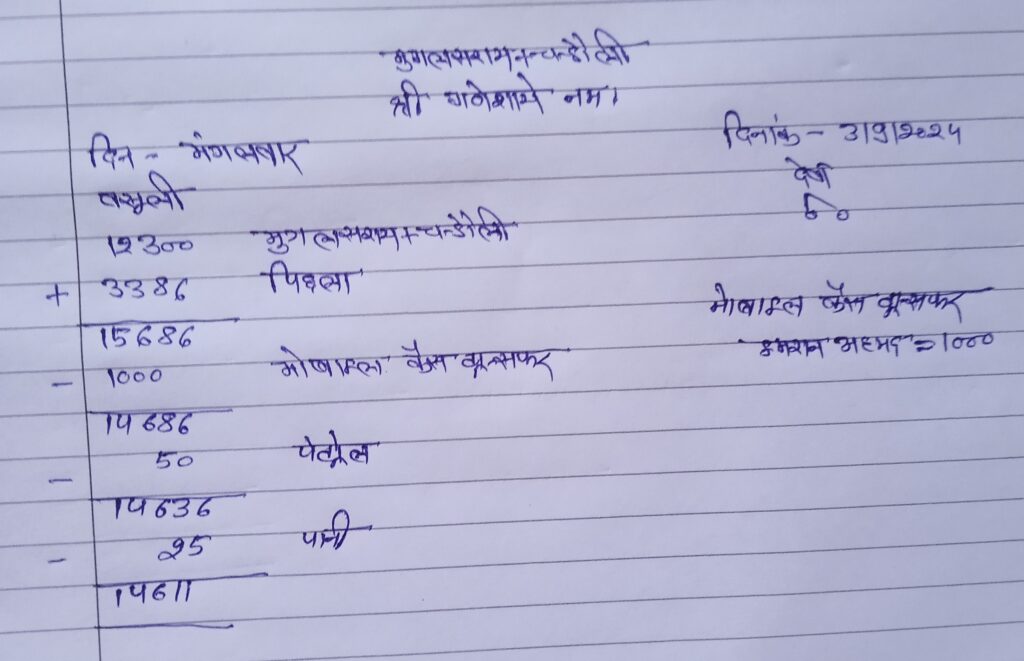 मुगलसराय+चन्डौली
श्री गणेशाये नम।
दिन - मंगलवार
दिनांक - 3/9/2024
वसूली
12300 मुगलसराय+चन्डौली
+ 3386 पिछला
15686
- 1000 मोबाइल कैस ट्रान्सफर
मोबाइल कैस ट्रान्सफर
इमरान अहमद = 1000
14686
- 50 पेट्रोल
14636
- 25 पानी
14611